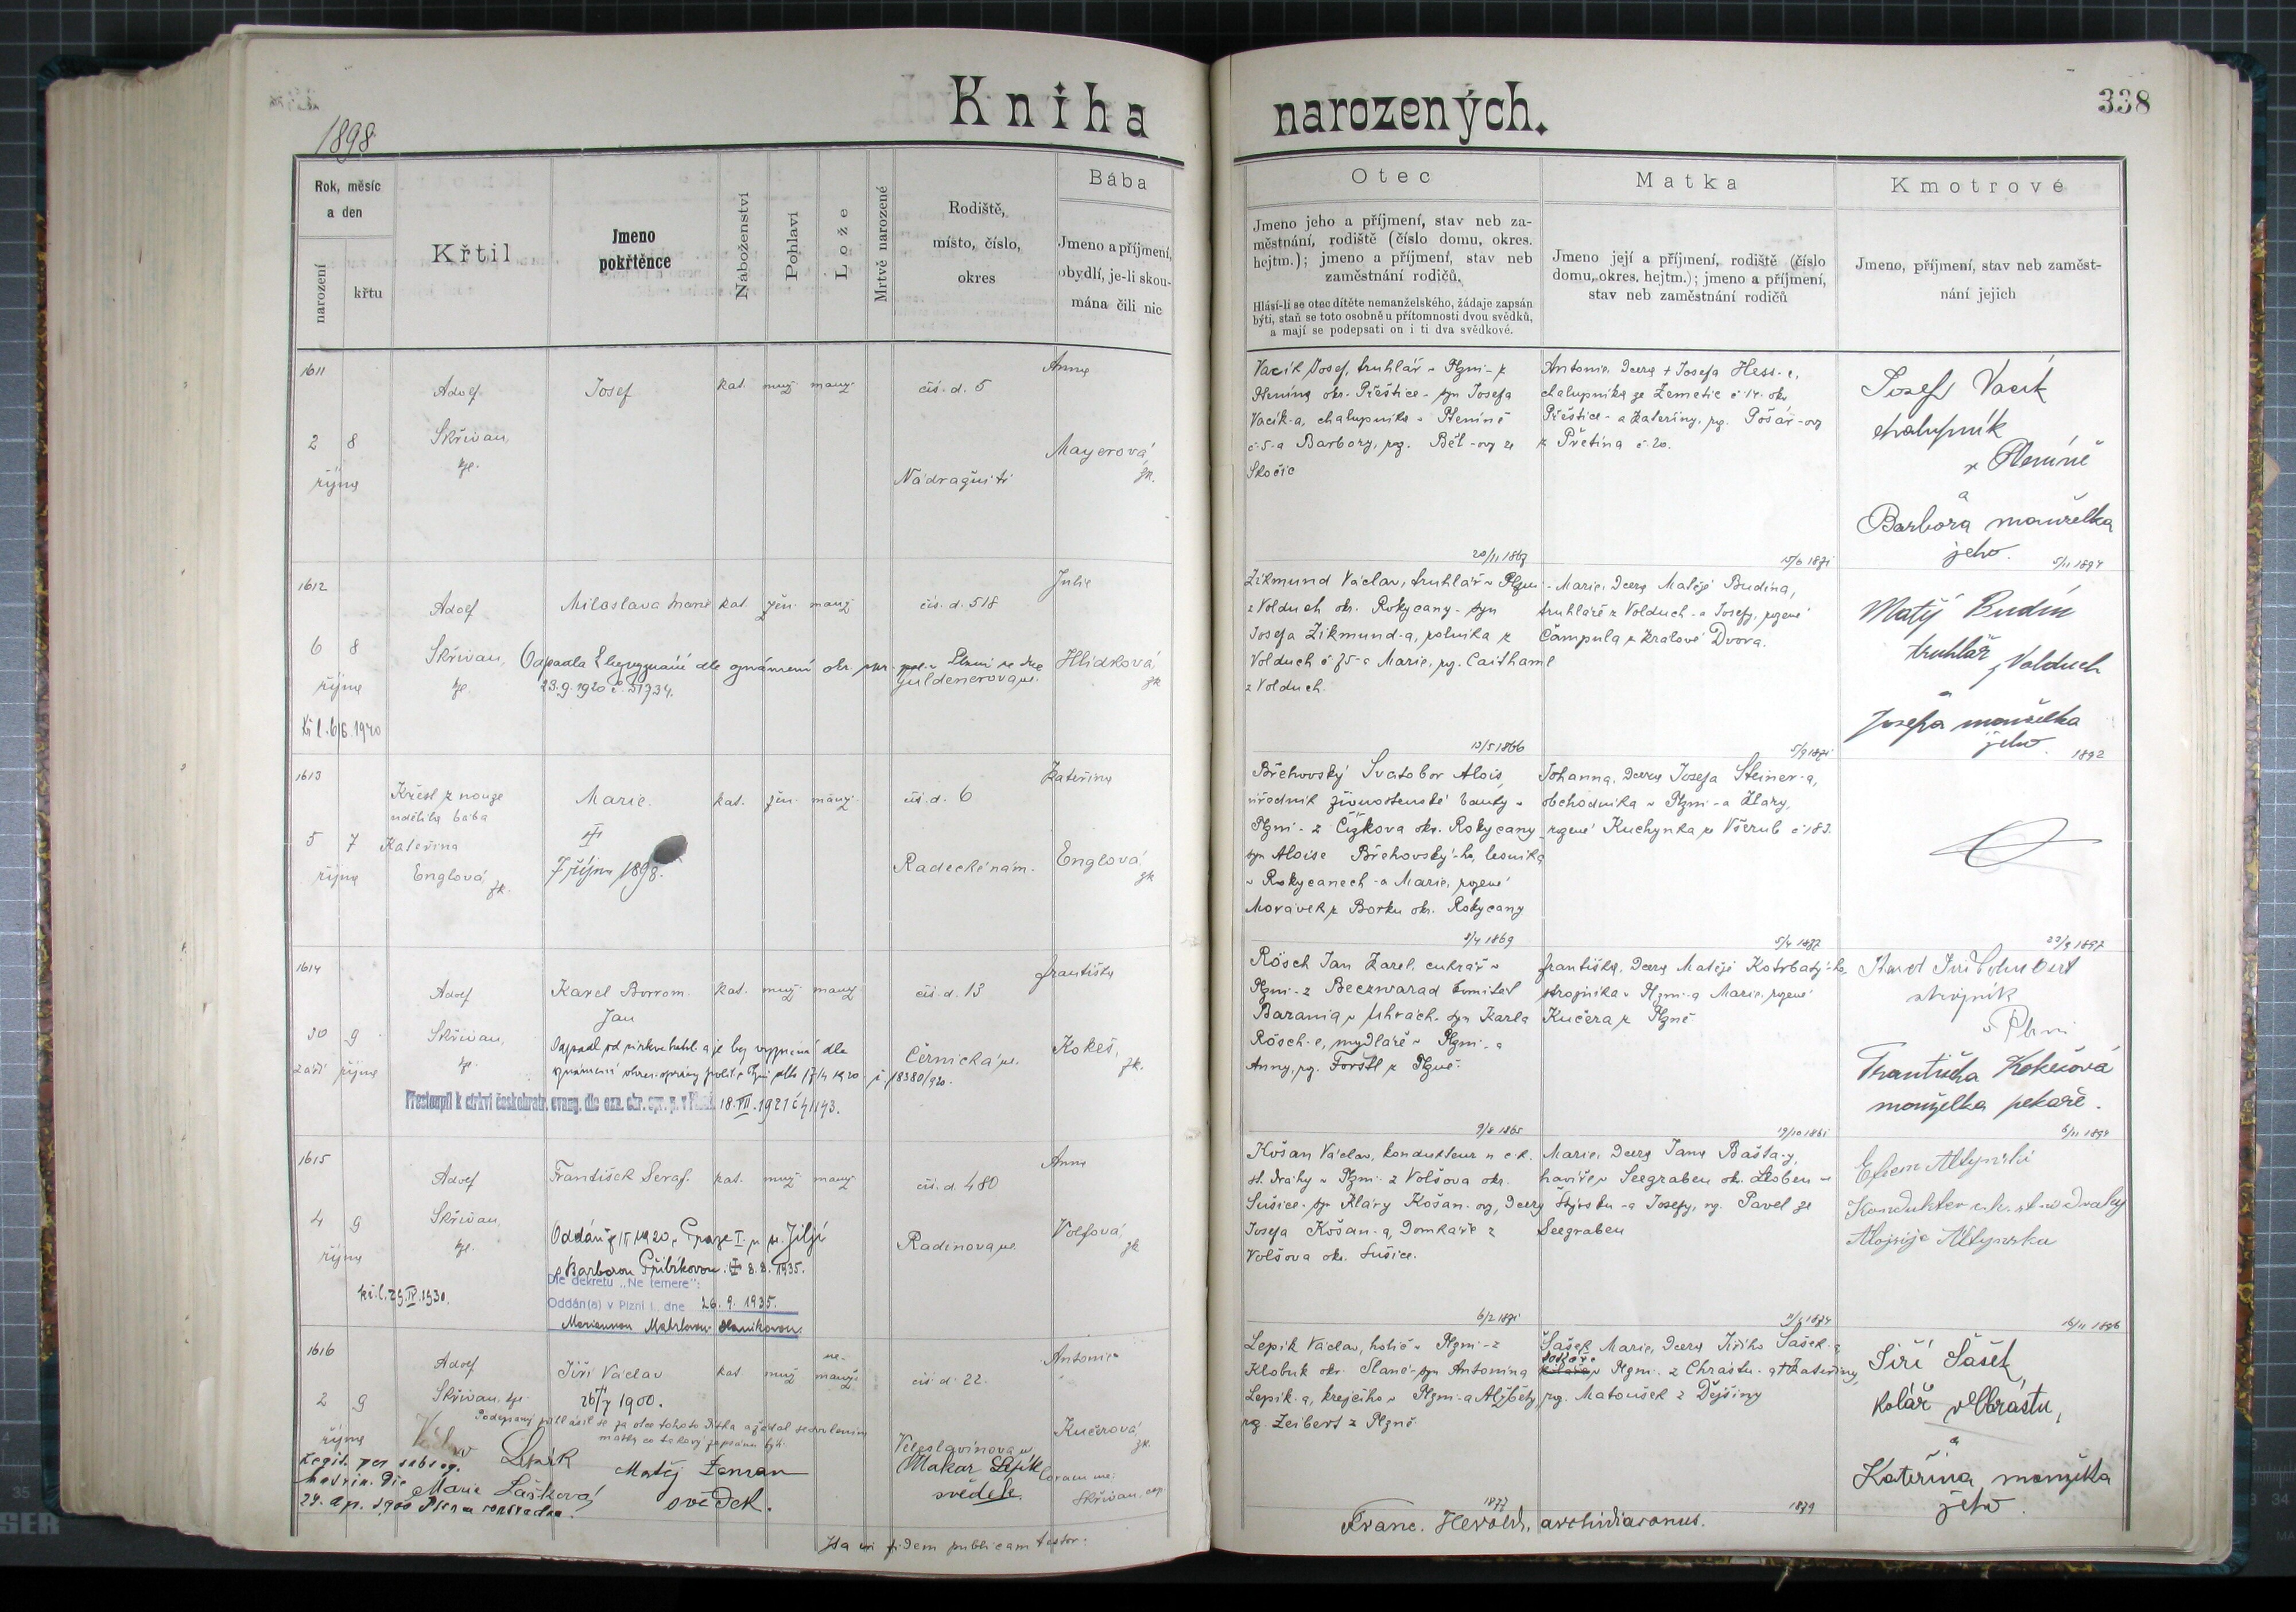 Kniha narozených.
338
1898
Rok, měsíc
a den
narození
křtu
Křtil
Jmeno
pokřtěnce
Náboženství
Pohlaví
Lože
Mrtvě narozené
Rodiště,
místo, číslo,
okres
Bába
Jmeno a příjmení,
obydlí, je-li skou-
mána čili nic
Otec
Jmeno jeho a příjmení, stav neb za-
městnání, rodiště (číslo domu, okres.
hejtm.); jmeno a příjmení, stav neb
zaměstnání rodičů.
Hlásí-li se otec dítěte nemanželského, žádaje zapsán
býti, staň se toto osobně u přítomnosti dvou svědků,
a mají se podepsati on i ti dva svědkové.
Matka
Jmeno její a příjmení, rodiště (číslo
domu, okres. hejtm.); jmeno a příjmení,
stav neb zaměstnání rodičů
Kmotrové
Jmeno, příjmení, stav neb zaměst-
nání jejich
1611
2 8
října
Adolf
Skřivan,
kpl.
Josef
kat. muž. manž.
čís. d. 5
Nádražní tř.
Anna
Mayerová,
zk.
Vacík Josef, truhlář v Plzni - z
Ptenína okr. Přeštice - syn Josefa
Vacík-a, chalupníka v Pteníně
č. 5 - a Barbory, roz. Běl-ovy ze
Skočic
20/11 1867
Antonie, dcera † Josefa Hess-e,
chalupníka ze Zemětic č. 14. okr.
Přeštice - a Kateřiny, roz. Pošár-ovy
z Přetína č. 20.
15/6 1871
Josef Vacík
chalupník
v Pteníně
a
Barbora manželka
jeho.
5/11 1894
1612
6 8
října
Bř. l. 6/6 1940
Adolf
Skřivan,
kpl.
Miloslava Marie
kat. žen. manž.
čís. d. 518
Odpadla k bezvyznání dle oznámení okr. spr. pol. v Plzni ze dne
23.9.1920 č. 51734.
Guldenerova ul.
Julie
Hlídková,
zk
Zikmund Václav, truhlář v Plzni -
z Volduch okr. Rokycany - syn
Josefa Zikmund-a, rolníka z
Volduch č. 75 - a Marie, roz. Caithaml
z Volduch.
13/5 1866
Marie, dcera Matěje Budína,
truhláře z Volduch - a Josefy, rozené
Čampula z Králové Dvora.
5/9 1871
Matěj Budín
truhlář z Volduch
a
Josefa manželka
jeho.
1892
1613
5 7
října
Křest z nouze
udělila bába
Kateřina
Englová, zk.
Marie.
7 října 1898.
kat. žen. manž.
čís. d. 6
Radeckého nám.
Kateřina
Englová,
zk
Břehovský Svatobor Alois,
úředník živnostenské banky v
Plzni - z Čížkova okr. Rokycany -
syn Aloise Břehovský-ho, lesníka
v Rokycanech - a Marie, rozené
Morávek z Borku okr. Rokycany
8/4 1869
Johanna, dcera Josefa Steiner-a,
obchodníka v Plzni - a Kláry,
rozené Kuchynka z Všerub č. 183.
5/4 1877
29/3 1897
1614
30 9
září října
Adolf
Skřivan,
kpl.
Karel Borrom.
Jan
kat. muž. manž.
čís. d. 13
Odpadl od církve katol. a je bez vyznání dle
oznámení okres. správy polit. v Plzni dto 17/4 1920 č. 18380/920.
Přestoupil k církvi českobratr. evang. dle ozn. okr. spr. p. v Plzni 18.VII.1921 č. 41143.
Černická ul.
Františka
Kokeš,
zk.
Rösch Jan Karel, cukrář v
Plzni - z Beczwarad komitat
Barania v Uhrách - syn Karla
Rösch-e, mydláře v Plzni - a
Anny, roz. Forstl z Plzně.
9/8 1865
Františka, dcera Matěje Kotrbatý-ho,
strojníka v Plzni - a Marie, rozené
Kučera z Plzně
19/10 1861
strojník
v Plzni
Františka Kokešová
manželka pekaře.
6/11 1894
1615
4 9
října
bř. l. 29.IV.1930.
Adolf
Skřivan,
kpl.
František Seraf.
kat. muž. manž.
čís. d. 480
Radinova ul.
s Barborou Přibíkovou. 8.8.1935.
Dle dekretu „Ne temere“:
Oddán(a) v Plzni I., dne 26.9.1935.
Anna
Volfová,
zk
Košan Václav, kondukteur u c. k.
st. dráhy v Plzni - z Volšova okr.
Sušice - syn Kláry Košan-ovy, dcery
Josefa Košan-a, domkáře z
Volšova okr. Sušice.
6/2 1871
Marie, dcera Jana Bašta-y,
havíře v Seegraben okr. Leoben v
Štýrsku - a Josefy, roz. Pavel ze
Seegraben
16/11 1896
1616
2 9
října
Adolf
Skřivan, kpl.
Jiří Václav
26/7 1900.
kat. muž. ne-
manž.
čís. d. 22.
Veleslavínova ul.
Antonie
Kučerová,
zk.
Podepsaný přihlásil se za otce tohoto dítka a žádal se svolením
matky co takový zapsánu býti.
Václav Lepík
Matěj Zeman
svědek.
Makar Lepík
svědek.
Coram me:
Skřivan, cap.
Legit. per subseq.
matrim. die
Marie Šašková
Lepík Václav, holič v Plzni - z
Klobuk okr. Slané - syn Antonína
Lepík-a, krejčího v Plzni - a Alžběty,
roz. Zeibert z Plzně
1877
Šašek Marie, dcera Jiřího Šašek-a,
kolaře v Plzni - z Chrástu - a † Kateřiny,
roz. Matoušek z Dýšiny
1879
Jiří Šašek,
kolář v Chrástu,
a
Kateřina manželka
jeho.
Ita in fidem publicam testor:
Franc. Herold, archidiaconus.